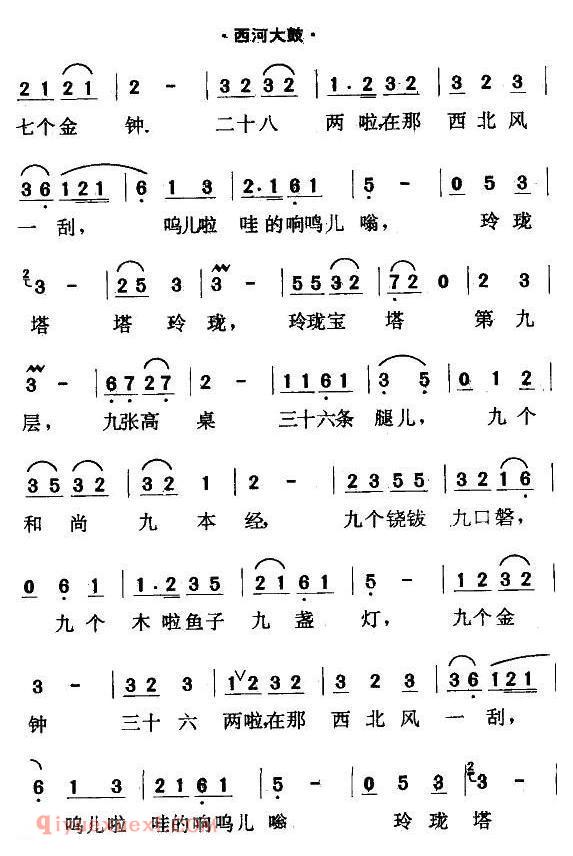 ·西河大鼓·
2 1 2 1 | 2 - | 3 2 3 2 | 1·2 3 2 | 3 2 3 |
七个金 钟. 二十八 两啦,在那 西北风
3 6 1 2 1 | 6 1 3 | 2·1 6 1 | 5 - | 0 5 3 |
一刮, 呜儿啦 哇的响呜儿 嗡, 玲珑
2 3 - | 2 5 3 | 3 - | 5 5 3 2 | 7 2 0 | 2 3 |
塔 塔玲 珑, 玲珑宝 塔 第九
3 - | 6 7 2 7 | 2 - | 1 1 6 1 | 3 5 | 0 1 2 |
层, 九张高 桌 三十六条 腿儿, 九个
3 5 3 2 | 3 2 1 | 2 - | 2 3 5 5 | 3 2 1 6 |
和尚 九本 经, 九个铙钹 九口磬,
0 6 1 | 1·2 3 5 | 2 1 6 1 | 5 - | 1 2 3 2 |
九个 木啦鱼子 九盏 灯, 九个金
3 - | 3 2 3 | 1 2 3 2 | 3 2 3 | 3 6 1 2 1 |
钟 三十六 两啦,在那 西北风 一刮,
6 1 3 | 2 1 6 1 | 5 - | 0 5 3 | 2 3 - |
呜儿啦 哇的响呜儿 嗡 玲珑 塔